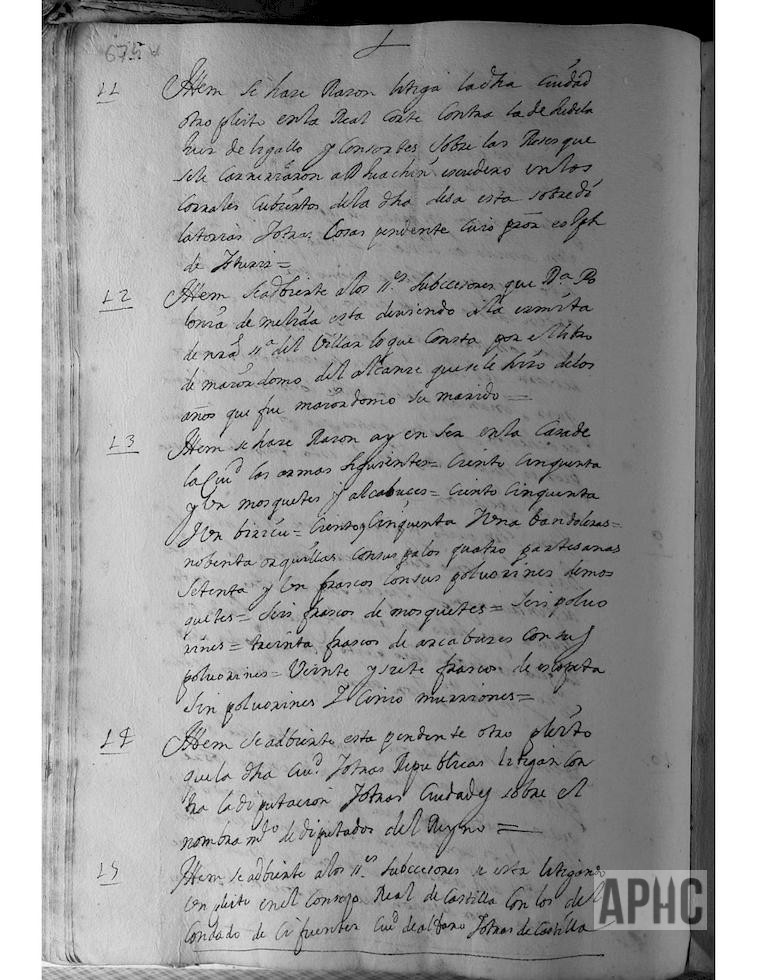 675v
11 Ittem se haze Razon letiga la dha Ciudad
otro pleito en la Real Corte Contra
de ligallo y Consortes sobre las Reses que
sele Carneraron a escudero en los
Corrales Cubiertos dela dha desa esta sobre
Jotras Cosas pendente Cuio
de =
12 Ittem se adbierte alos ss.es Subccesores que D.a Po
lonia de esta deviendo ala ermita
de nrã s.a del Villar lo que Consta por el libro
de maiordomo del alcanze que se le hizo delos
años que fue maiordomo su marido =
13 Ittem se haze Razon ay en ser en la Casa de
la Ciu.d las armas siguientes = Ciento Cinquenta
y Un mosquetes y alcabuces = Ciento Cinquenta
J Un = Ciento y Cinquenta J Una bandoleras =
nobenta orquillas con sus palos quatro partesanas
Setenta y Un frascos con sus polvorines de mos=
quetes = seis frascos de mosquetes = seis polvo
rines = treinta frascos de arcabuzes con sus
polvorines = Veinte y siete frascos de escopeta
sin polvorines Y Cinco murriones =
14 Ittem se adbierte esta pendente otro pleito
que la dha Ciu.d Jotras Republicas letigan Con
tra la diputacion Jotras Ciudades sobre el
nombram.to de diputados del Reyno =
15 Ittem se adbierte alos ss.es Subccesores se esta letigando
Un pleito en el Consejo Real de Castilla Con los del
Condado de Cifuentes Ciu.d de alfaro Jotras de Castilla
APHC